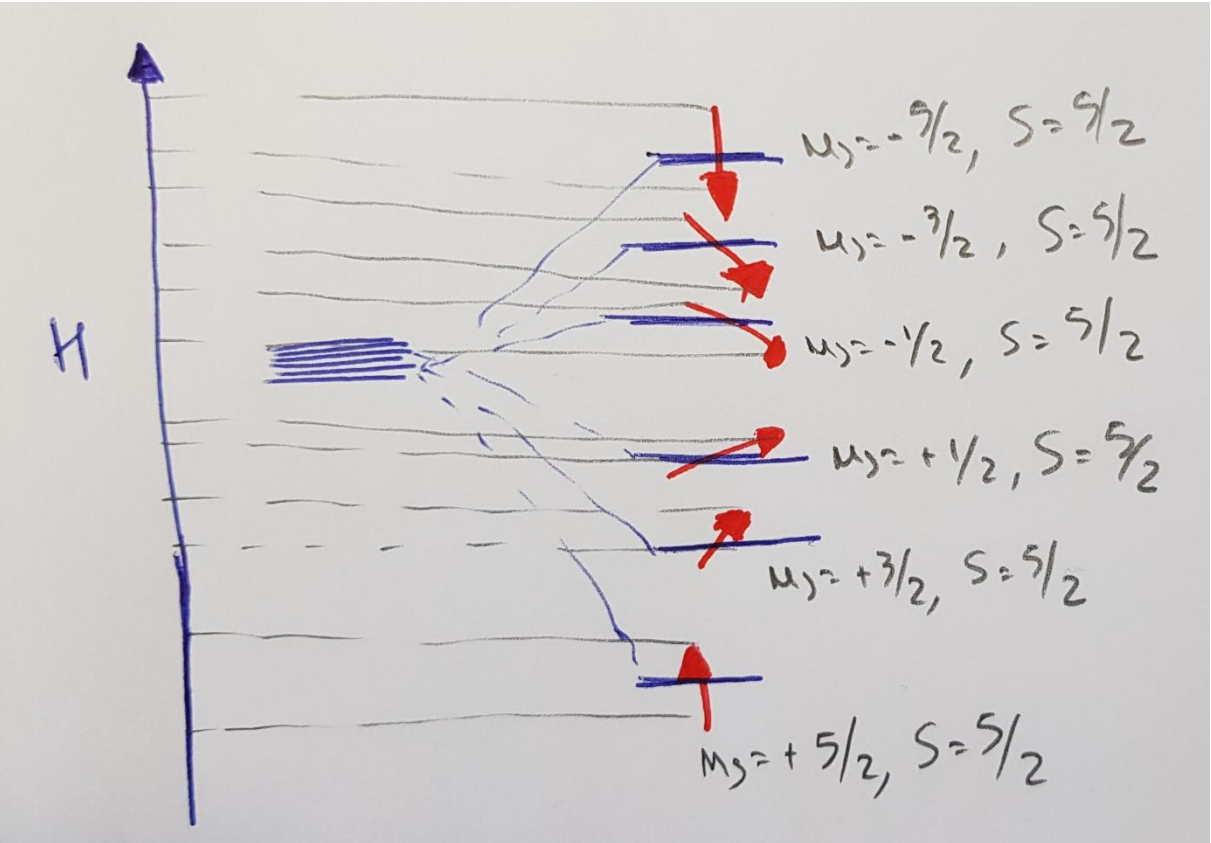 Ms=-5/2, S=5/2
Ms=-3/2, S=5/2
H
Ms=-1/2, S=5/2
Ms=+1/2, S=5/2
Ms=+3/2, S=5/2
Ms=+5/2, S=5/2